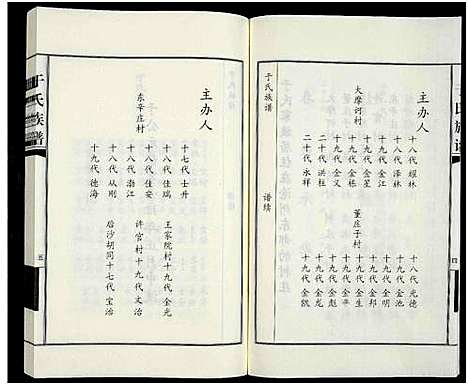 主办人
大摩诃村
十八代 耀林
十八代 泽林
十九代 金江
十九代 金星
十九代 金义
二十代 洪柱
二十代 永祥
董庄子村
十八代 光德
十九代 金池
十九代 金明
十九代 金邦
十九代 金生
十九代 金平
十九代 金龙
十九代 金彪
十九代 金凯
于氏族谱
谱续
主办人
十七代 士升
十八代 佳瑞
十八代 佳安
东辛庄村
十八代 渤江
十八代 从刚
十九代 德海
王家院村 十九代 金光
许官村 十九代 文治
后沙胡同 十七代 宝治
于氏族谱
五